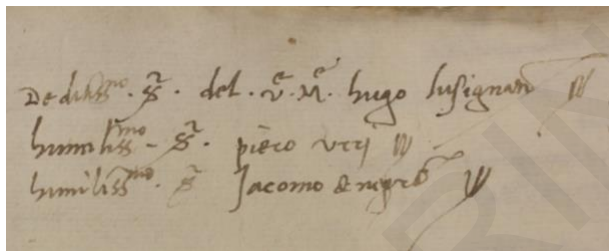 Dediliss^mo. S^r. del. V^e. M^e. hugo lusignan
humiliss^mo. S^r. piero
humiliss^mo. S^r. Jacomo de negro